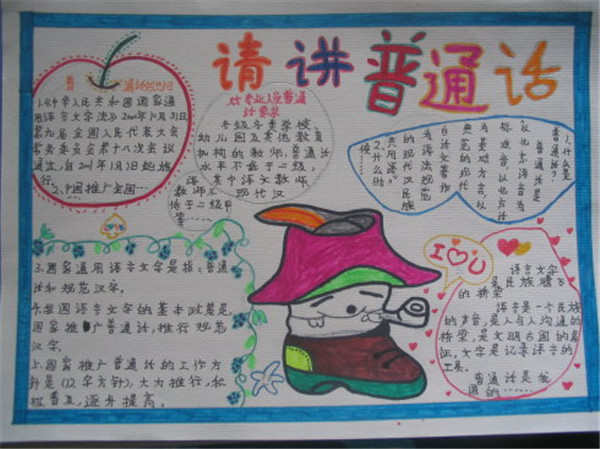 请讲普通话
1.《中华人民共和国国家通
用语言文字法》2000年10月31日
第九届全国人民代表大会
常务委员会第十八次会议
通过,自2001年1月1日起施
行。
2.中国推广全国…
普通
话要求
各级各类学校、
幼儿园及其他教育
机构的教师,普通话
水平不低于二级,
其中语文教师
教师不
低于二级甲
等……
1.什么是
普通话?
普通话是
以北京语音为
标准音以北方话
为基础方言,以
典范的现代
白话文著作
为语法规范
的现代汉民族
共同语。
2.什么时
候……
3.国家通用语言文字是指:普通
话和规范汉字。
4.我国语言文字的基本政策是
国家推广普通话,推行规范
汉字。
5.国家推广普通话的工作方
针是(12字方针),大力推行,积
极普及,逐步提高。
I ♡ U
语言文字
是民族腾飞
的桥梁
语言是一个民族
的声音,是人与人沟通的
桥梁,是文明古国的见
证,文字是记录语言的
工具。
普通话是沟
通的……